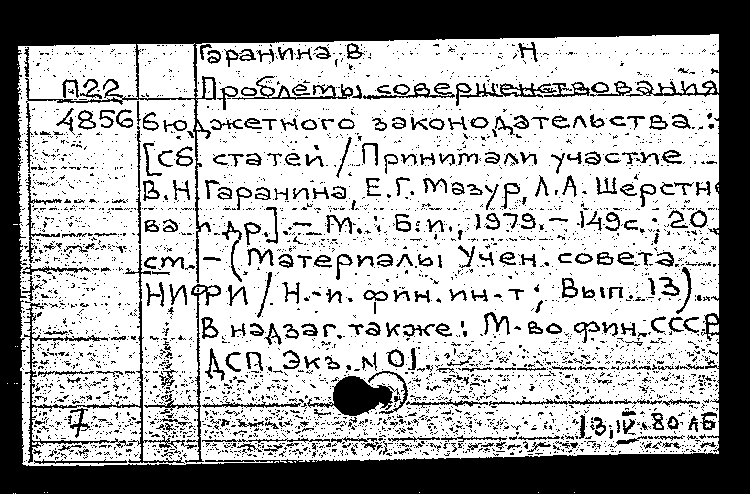 Гаранина, В Н
П22 Проблемы совершенствования
4856 бюджетного законодательства:
[Сб. статей / Принимали участие
В.Н. Гаранина, Е.Г. Мазур, Л.А. Шерстне
ва и др.]. – М.: Б.и., 1979. – 149с.; 20
ст. – (Материалы Учен. совета
НИФИ / Н.-и. фин. ин-т; Вып. 13).
В надзаг. также: М-во фин. СССР
ДСП. Экз. N 01
7 13,IV.80 ЛБ